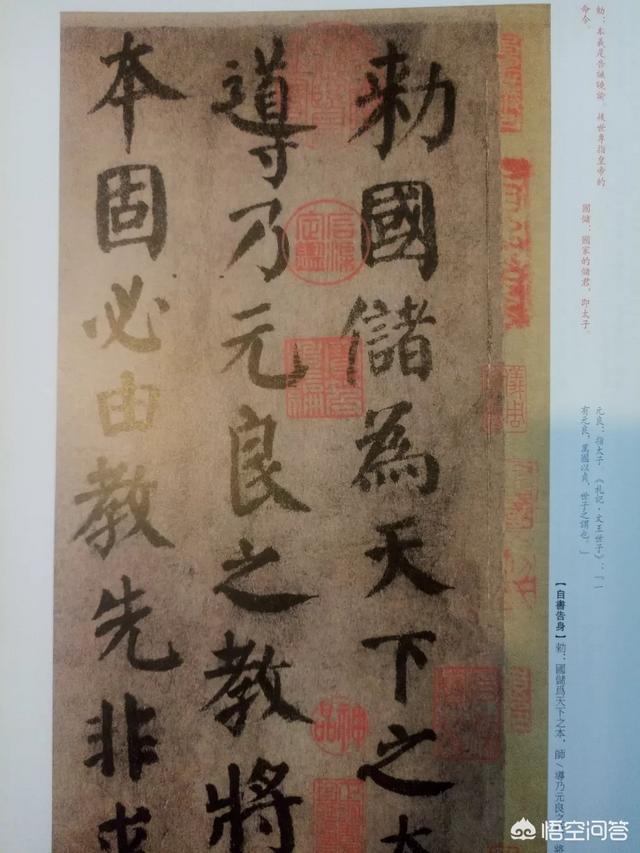 勑：本義是告誡曉諭。後世專指皇帝的
命令。
國儲：國家的儲君，即太子。
元良：指太子。《礼記·文王世子》：「一
有元良，萬國以貞，世子之謂也。」
【自書告身】勑：國儲爲天下之本，師\導乃元良之
勑國儲為天下之本
導乃元良之教將
本固必由教先非求
石渠定鑑
寶笈重編
神品
悟空问答